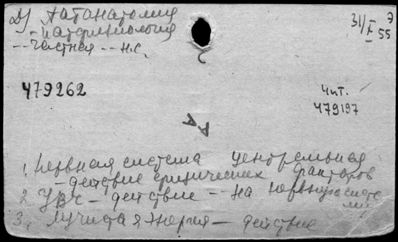 2) Патанатомия
31/X 55
- патфизиология
-- частная -- н.с.
479262
Чит.
479197
1. Нервная система центральная
- действие физических факторов
2. УВЧ - действие -- на нервную систему
3. Лучистая энергия - действие